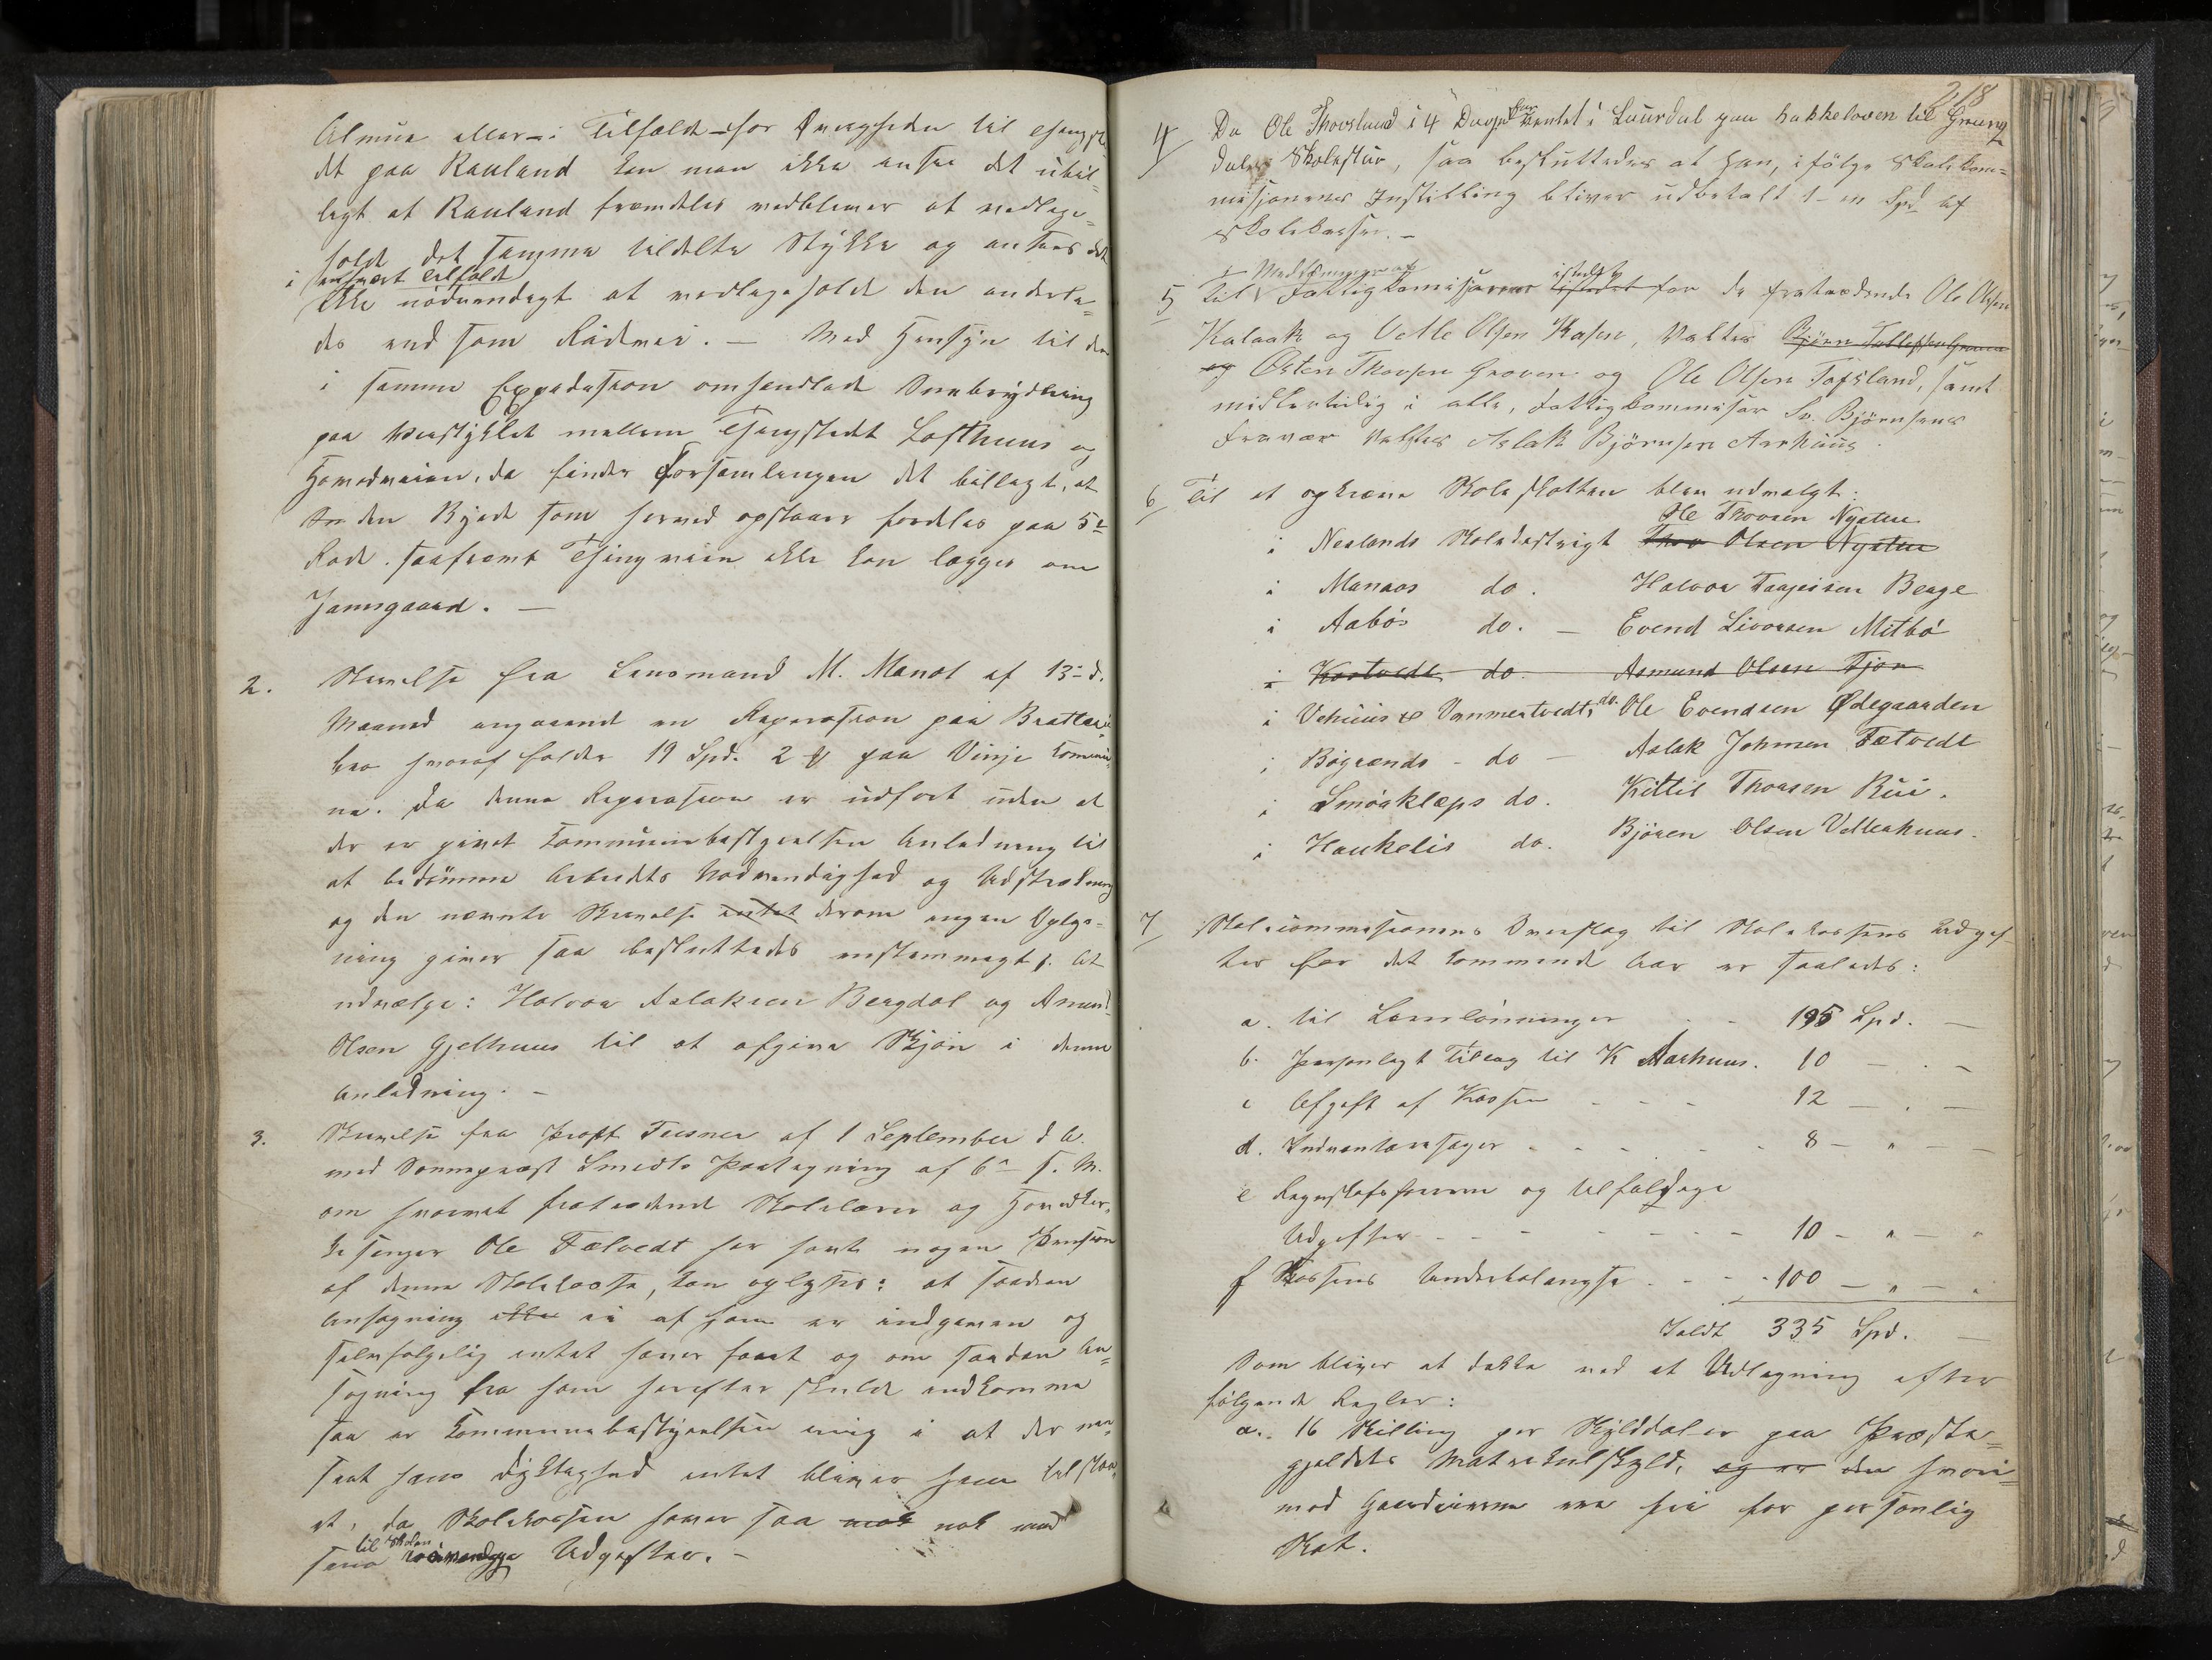 Almue eller i Tilfælde for Qvægheder til
det paa Rauland kan man ikke ansee det ubil=
ligt at Rauland fremdeles vedbliver at vedlige=
holde det samme tildelte Stykke og ansees det
i saadant Tilfælde
ikke nödvendigt at vedligeholde den anderle=
des end som Rideveie. — Med Hensyn til den
i samme Expedition omhandlede Snebrydning
paa Veistykket mellem Thingstedet Lofthuus og
Hovedveien, da finder Forsamlingen det billigt, at
den Byrde som herved opstaaer fordeles paa 5te
Rode saafremt Thingveien ikke kan lægges om
Jamsgaard. —
2. Skrivelse fra Lensmand M. Manos af 13de d.
Maaned angaaende en Reparation paa Brattlie
bro hvoraf falder 19 Spd. 2 paa Vinje Kommu=
ne. Da denne Reparation er udfört uden at
der er givet Kommunebestyrelsen Anledning til
at bedömme Arbeidets Nödvendighed og Udstrækning
og den nævnte Skrivelse intet derom ingen Oplys=
ning giver saa besluttedes enstemmigt at
udvælge: Halvor Aslaksen Bergdal og Amund
Olsen Gjelhuus til at afgive Skjön i denne
Anledning. —
3. Skrivelse fra Provst Tusner af 1 September d. A.
med Sognepræst Smedts Paategning af 6te s. M.
om hvorvidt fratrædende Skolelærer og Hovedkir=
kesanger Ole Fælvedt har havt nogen Pension
af denne Skolekasse, kan oplyses: at saadan
Ansögning ikke ei af ham er indgiven og
selvfölgelig intet haver faaet og om saadan An=
sögning fra ham herefter skulde indkomme
saa er Kommunebestyrelsen enig i at der uan=
seet hans Dygtighed intet bliver ham tilstaa=
et, da Skolekassen haver saa nok nok med
til Skolen
sine nödvendige Udgifter. —
218
4/ Da Ole Thovsland i 4 Dage har ventet i Laurdal paa hakkeloven til Grung
dals Skolestue, saa besluttedes at han, i fölge Skolekom=
missjonens Instilling bliver udbetalt 1- en Spd af
Skolekassen. —
Medlemmer af istedet
5 til Fattigkomisjonen istedet for de fratrædende Ole Olsen
Kalaak og Vetle Olsen Kasen, valtes Björn Tallefsen Groven
og Östen Thovsen Groven og Ole Olsen Tofsland, samt
midlertidig i alle, Fattigkommisær Sv. Björnsens
Fravær valtes Aslak Björnsen Aarhuus.
6/ Til at opkræve Skoleskatten blev udvalgt:
Ole Thovsen Nysten
i Neslands Skoledistrigt Thov Olsen Nysten
i Manaos do. Halvor Taagesen Berge
i Aabös do. — Evend Livorsen Mitbö
i Kostvedt do. Asmund Olsen Tjon
i Vehuus & Vemmestvedt, do. Ole Evendsen Ødegaarden
i Bögrends - do — Aslak Johnsen Fætvedt
i Smörklæps do. Kittil Thorsen Rui.
i Haukelis do. Björen Olsen Vetlerhuus.
7/ Skolecommisionens Overslag til Skolekassens Udgif=
ter for det kommende Aar er saaledes:
a. til Lærerlönninger - - 195 Spd. —
b. personligt Tillæg til K Aarhuus. 10 — . —
c Afgift af Kassen - - - 12 — . —
d. Indventarsager - - - - - 8 — " —
e Regnskabsförerne og tilfældige
Udgifter - - - - - - - 10 — " — "
f Kassens Underbalangse - - - 100 — " — "
Ialdt 335 Spd. —
Som bliver at dække ved at Udlegning efter
fölgende Regler:
a. 16 Skilling per Skylddaler paa Præste=
gjeldets Matrekulskyld, og er den hvori=
mod Gaardeierne ere fri for personlig
Skat.